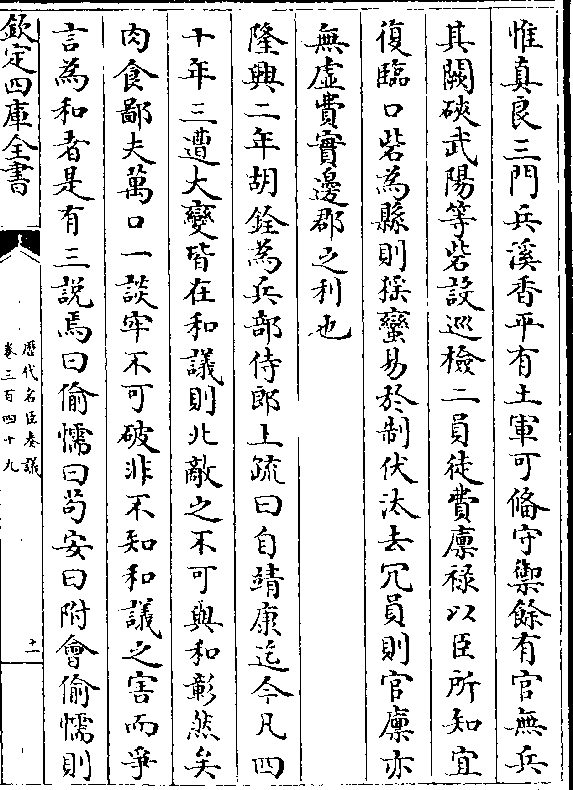 惟真良三門兵溪香平有土軍可備守禦餘有官無兵
其闕硤武陽等砦設巡檢二員徒費廩禄以臣所知宜
復臨口砦為縣則猺蠻易於制伏汰去冗員則官廩亦
無虚費實邊郡之利也
隆興二年胡銓為兵部侍郎上疏曰自靖康迄今凡四
十年三遭大變皆在和議則北敵之不可與和彰然矣
肉食鄙夫萬口一談牢不可破非不知和議之害而爭
言為和者是有三說焉曰偷懦曰茍安曰附會偷懦則
欽定四庫全書
歷代名臣奏議
卷三百四十九
十一